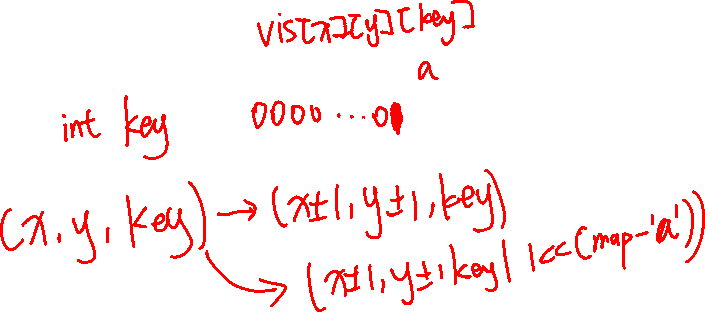 vis[x][y][key]
a
int key 0000...01
(x, y, key) → (x±1, y±1, key)
(x±1, y±1, key | 1<<(map-'a'))